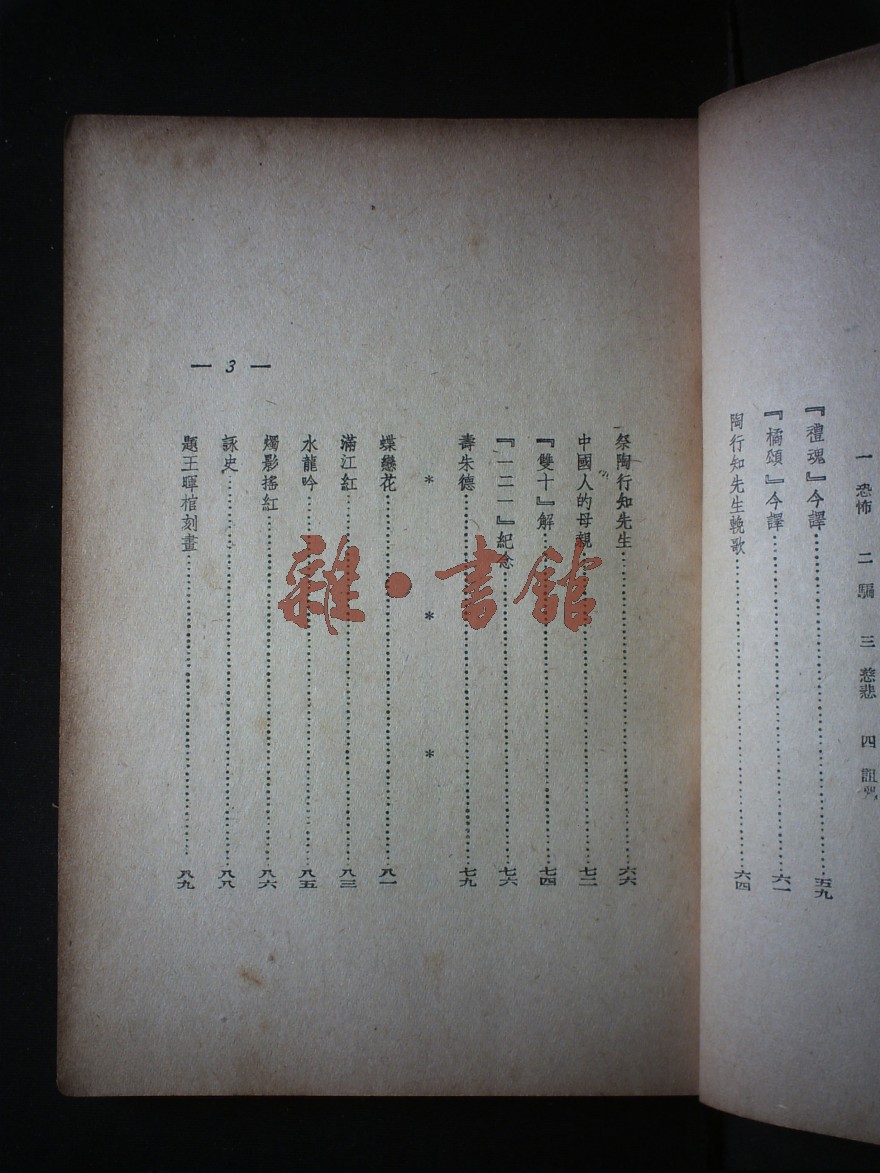 一 恐怖 二 騙 三 慈悲 四 詛咒
『禮魂』今譯……五九
『橘頌』今譯……六一
陶行知先生輓歌……六四
祭陶行知先生……六六
中國人的母親……七二
『雙十』解……七四
『一二一』紀念……七六
壽朱德……七九
* * *
蝶戀花……八一
滿江紅……八三
水龍吟……八五
燭影搖紅……八六
詠史……八八
題王暉棺刻畫……八九
— 3 —
雜·書館